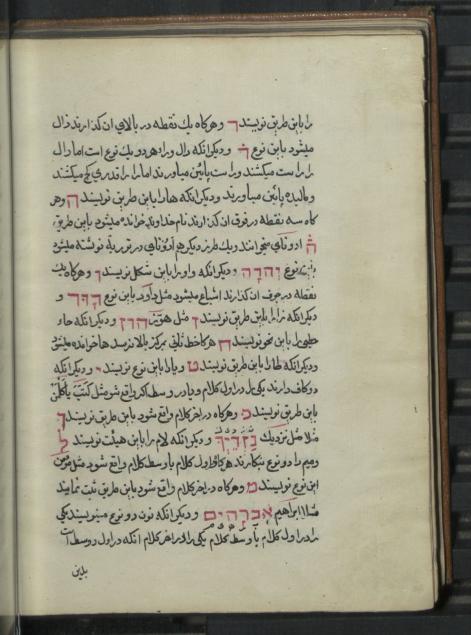 را باین طریق نویسند ד وهرکاه یك نقطه در بالای ان کذارند ذال
میشود باین نوع ד ودیکر انکه دال ورا هردو یك نوع است اما دال
را راست میکشند وراست پائین میاورند اما را را قدری کج میکشند
ومالیده پائین میاورند ودیکر انکه ها را باین طریق نویسند ה وهر
کاه سه نقطه در فوق ان کذارند نام خداوند خوانده میشود باین طریق
ה ادونای میخوانند ویك طرز دیکر هم ادونای در توریة نوشته میشود
باین نوع יהוה ودیکر انکه واو را باین شکل نویسند ו وهرکاه یك
نقطه در جوف ان کذارند اشباع میشود مثل داود باین نوع דוד و
دیکر انکه زا را باین طریق نویسند ז مثل هوز הוז ودیکر انکه حاء
حطی را باین نحو نویسند ח هرکاه خط ثانی مرکز بالا نرسد ها خوانده میشود
ودیکر انکه طا را باین طریق نویسند ט ویا را باین نوع نویسند י ودیکر انکه
دو کاف دارند یکی را در اول کلام ویا در وسط اکر واقع شود مثل
باین طریق نویسند כ وهرکاه در اخر کلام واقع شود باین طریق نویسند ך
مثلا مثل نزدیك נזדיך ودیکر انکه لام را باین هیئت نویسند ל
ومیم را دو نوع نکارند هرکاه اول کلام یا وسط کلام واقع شود مثل
این نوع نویسند מ وهرکاه در اخر کلام واقع شود باین طریق ثبت نمایند
مثلا ابراهیم אברהים ودیکر انکه نون دو نوع مینویسند یکی
را در اول کلام یا وسط کلام یکی را در اخر کلام انکه در اول ووسط است
بدین